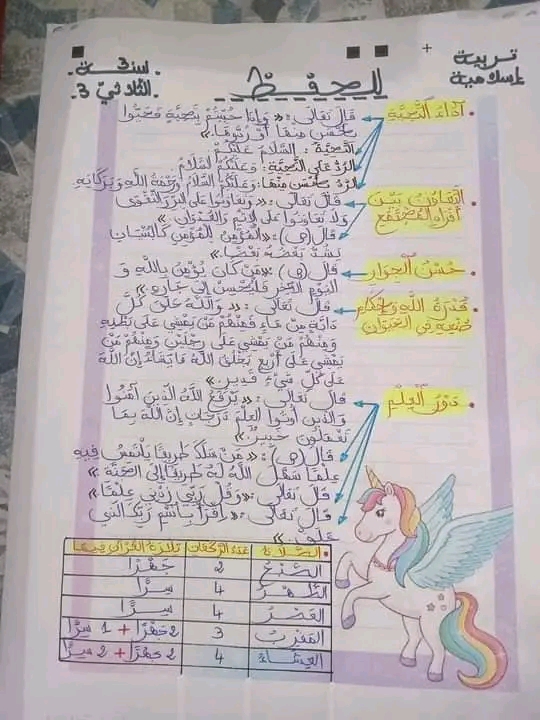 تربية
إسلامية
سنة 3
الثلاثي 3
للحفظ
• آداء التَّحِيَّةِ
قَالَ تَعَالَى: « وَإِذَا حُيِّيتُمْ بِتَحِيَّةٍ فَحَيُّوا
بِأَحْسَنَ مِنْهَا أَوْ رُدُّوهَا.»
التَّحِيَّة: السَّلَامُ عَلَيْكُمْ
الرَّدُّ عَلَى التَّحِيَّةِ: وَعَلَيْكُمُ السَّلَامُ
الرَّدُّ بِأَحْسَنَ مِنْهَا: وَعَلَيْكُمُ السَّلَامُ وَرَحْمَةُ اللَّهِ وَبَرَكَاتُهُ
• التَّعَاوُنُ بَيْنَ
أَفْرَادِ المُجْتَمَعِ
قَالَ تَعَالَى: « وَتَعَاوَنُوا عَلَى البِرِّ وَالتَّقْوَى
وَلَا تَعَاوَنُوا عَلَى الإِثْمِ وَالعُدْوَانِ »
قَالَ (ص): « المُؤْمِنُ لِلْمُؤْمِنِ كَالبُنْيَانِ
يَشُدُّ بَعْضُهُ بَعْضًا.»
• حُسْنُ الجِوَارِ
قَالَ (ص): « مَنْ كَانَ يُؤْمِنُ بِاللَّهِ وَ
اليَوْمِ الآخِرِ فَلْيُحْسِنْ إِلَى جَارِهِ.»
• قُدْرَةُ اللَّهِ وَإِحْكَامِ
صُنْعِهِ فِي الحَيَوَانِ
قَالَ تَعَالَى: « وَاللَّهُ خَلَقَ كُلَّ
دَابَّةٍ مِنْ مَاءٍ فَمِنْهُمْ مَنْ يَمْشِي عَلَى بَطْنِهِ
وَمِنْهُمْ مَنْ يَمْشِي عَلَى رِجْلَيْنِ وَمِنْهُمْ مَنْ
يَمْشِي عَلَى أَرْبَعٍ يَخْلُقُ اللَّهُ مَا يَشَاءُ إِنَّ اللَّهَ
عَلَى كُلِّ شَيْءٍ قَدِيرٌ.»
• دَوْرُ العِلْمِ
قَالَ تَعَالَى: « يَرْفَعُ اللَّهُ الَّذِينَ آمَنُوا
وَالَّذِينَ أُوتُوا العِلْمَ دَرَجَاتٍ إِنَّ اللَّهَ بِمَا
تَعْمَلُونَ خَبِيرٌ.»
قَالَ (ص): « مَنْ سَلَكَ طَرِيقًا يَلْتَمِسُ فِيهِ
عِلْمًا سَهَّلَ اللَّهُ لَهُ طَرِيقًا إِلَى الجَنَّةِ »
قَالَ تَعَالَى: « وَقُلْ رَبِّي زِدْنِي عِلْمًا »
قَالَ تَعَالَى: « اقْرَأْ بِاسْمِ رَبِّكَ الَّذِي
خَلَقَ.»
الصَّلَاة عَدَدُ الرَّكَعَات تِلَاوَةُ القُرْآنِ فِيهَا
الصُّبْحُ 2 جَهْرًا
الظُّهْرُ 4 سِرًّا
العَصْرُ 4 سِرًّا
المَغْرِبُ 3 2 جَهْرًا + 1 سِرًّا
العِشَاءُ 4 2 جَهْرًا + 2 سِرًّا